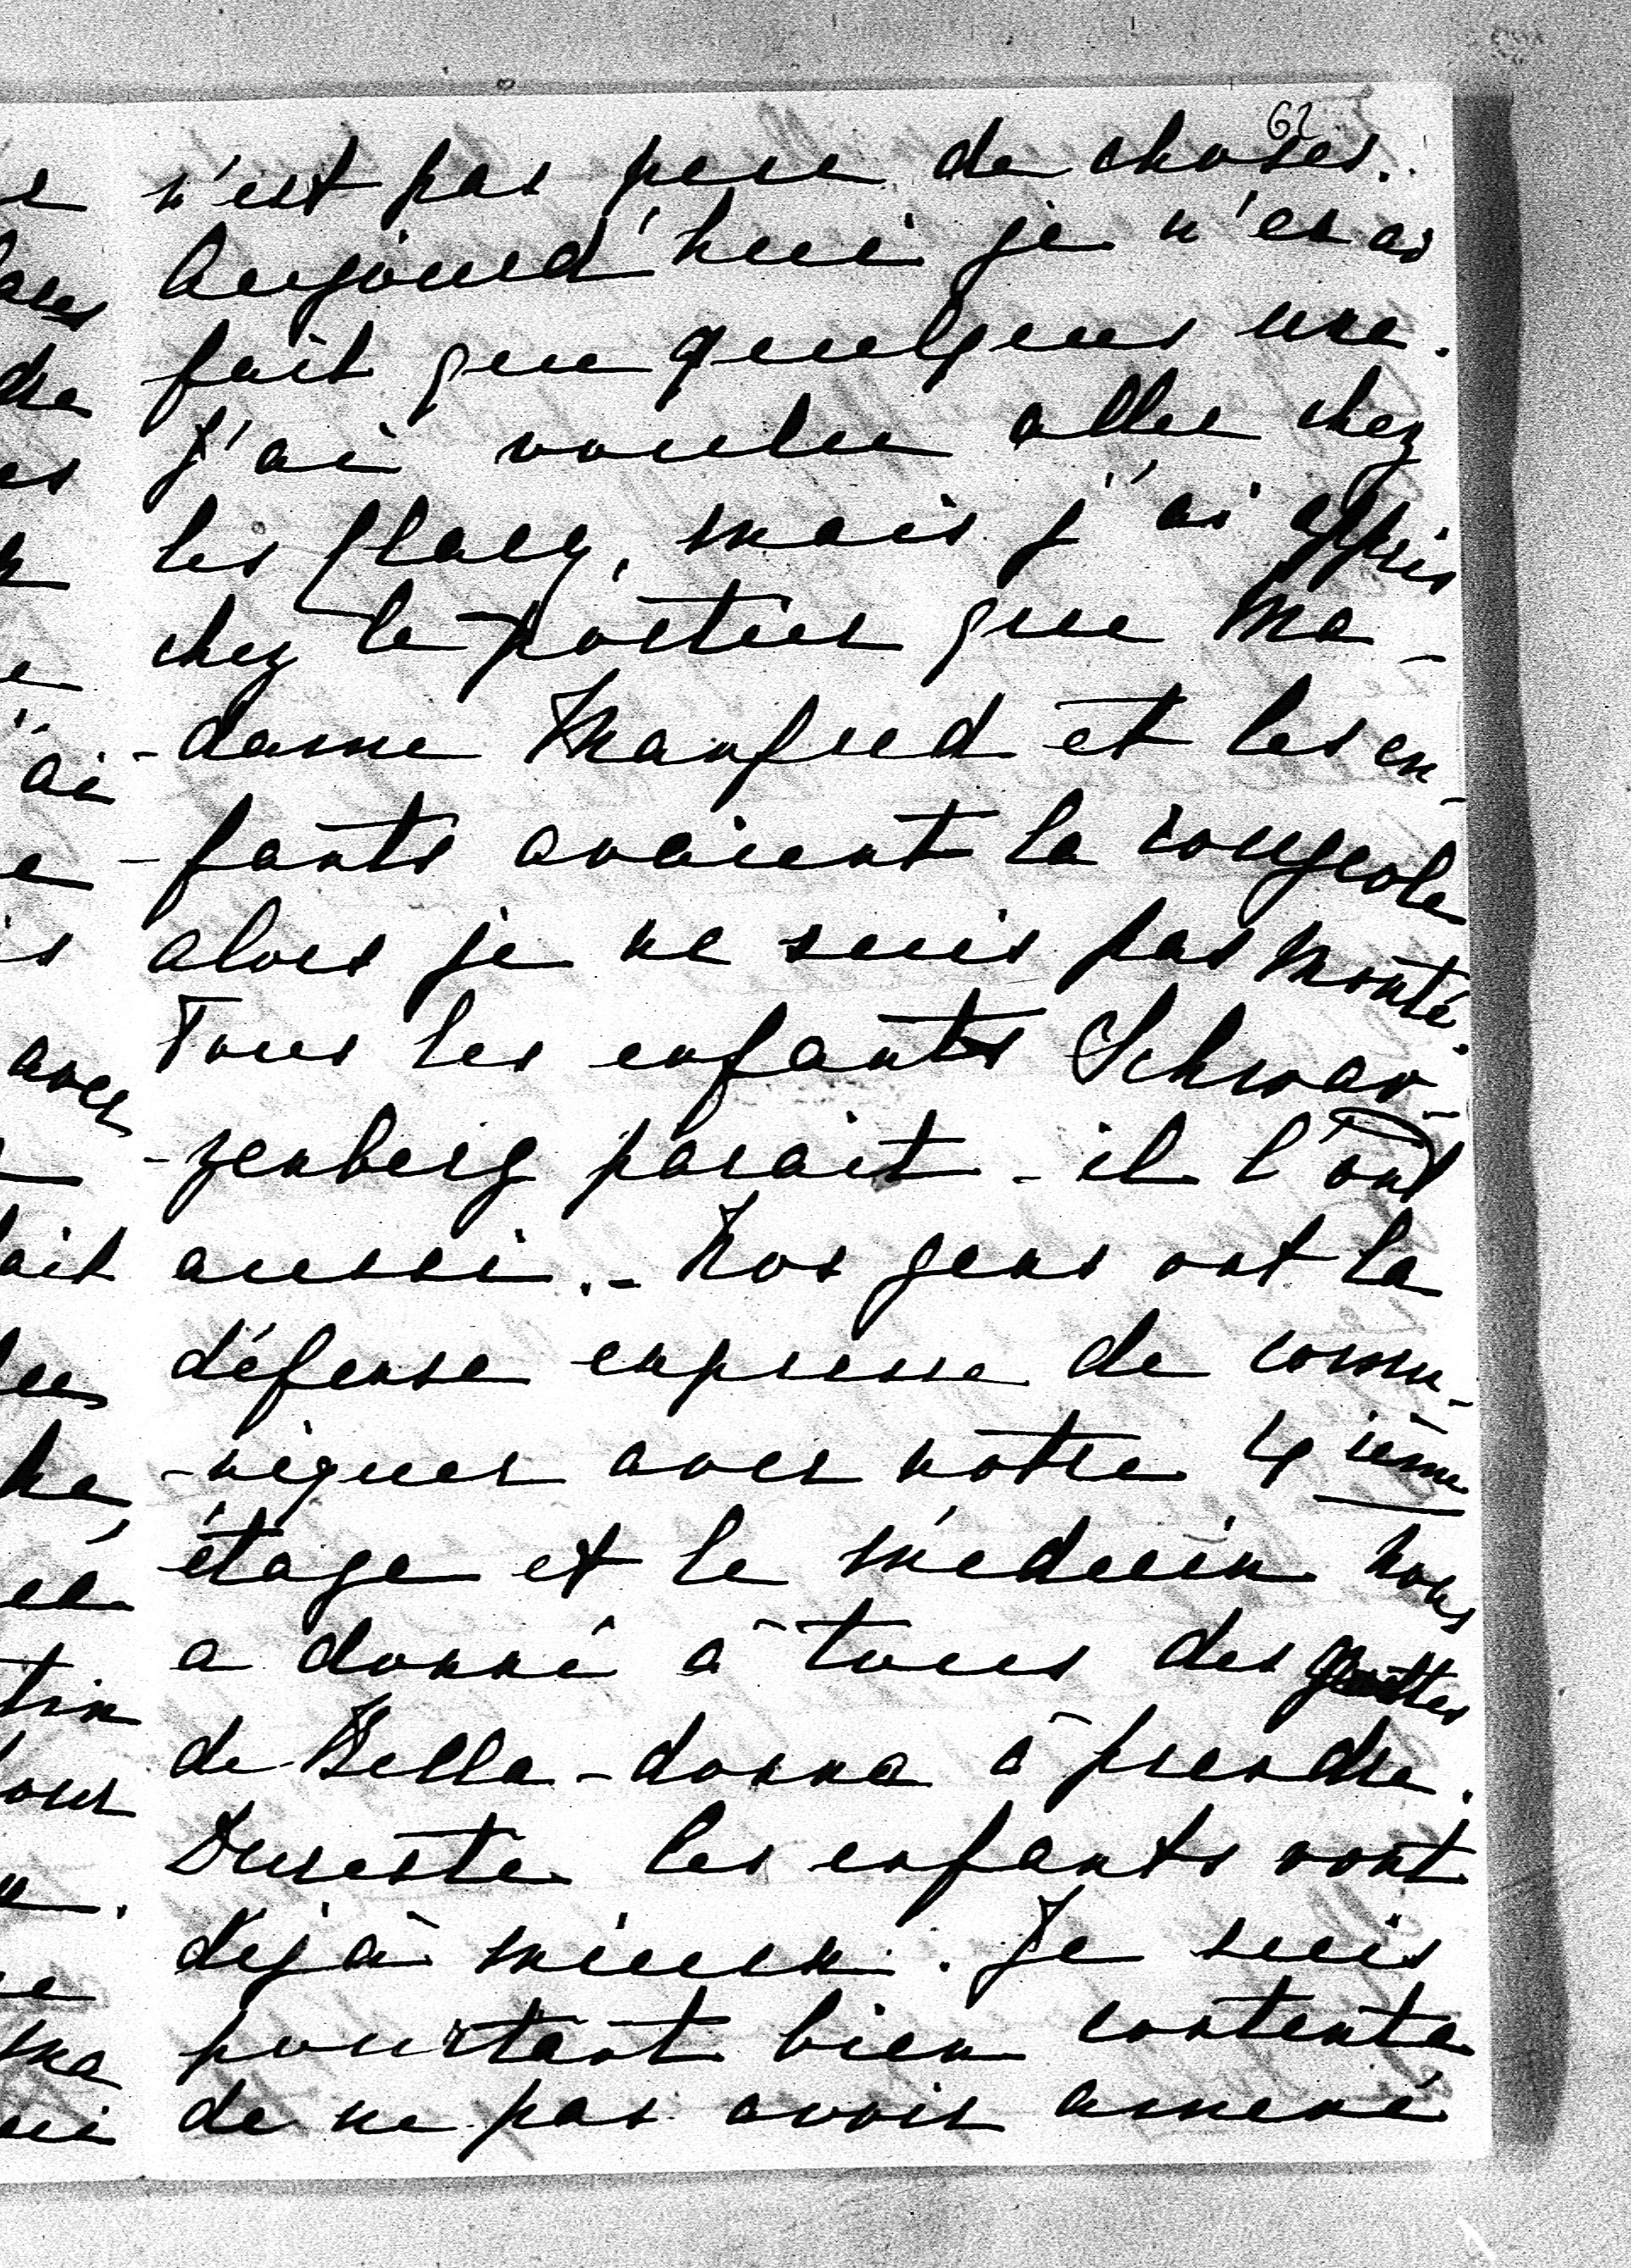 62
n'est pas peu de choses.
Aujourd'hui je n'en ai
fait que quelques une.
J'ai voulu aller chez
les Clary, mais j'ai appris
chez le portier que Ma-
-dame Manfred et les en-
-fants avaient la rougeole
alors je ne suis pas monté.
Tous les enfants Schwar-
-zenberg parait-il l'ont
aussi.- Nos gens ont la
défense expresse de comu-
-niquer avec notre 4 ième
étage et le médecin nous
a donné à tous des gouttes
de Bella-donna à prendre.
Dureste les enfants vont
déjà mieux. Je suis
pourtant bien contente
de ne pas avoir amené